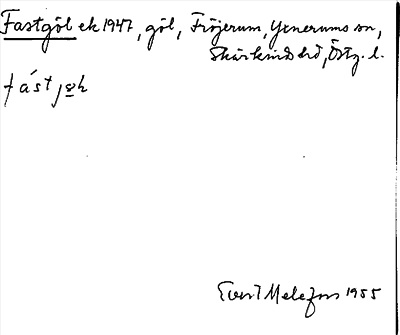 Fastgöl ek 1947, göl, Fröjerum, Yxnerums sn,
Skärkinds hd, Östg. l.
fástjɵl
Evert Melefors 1955